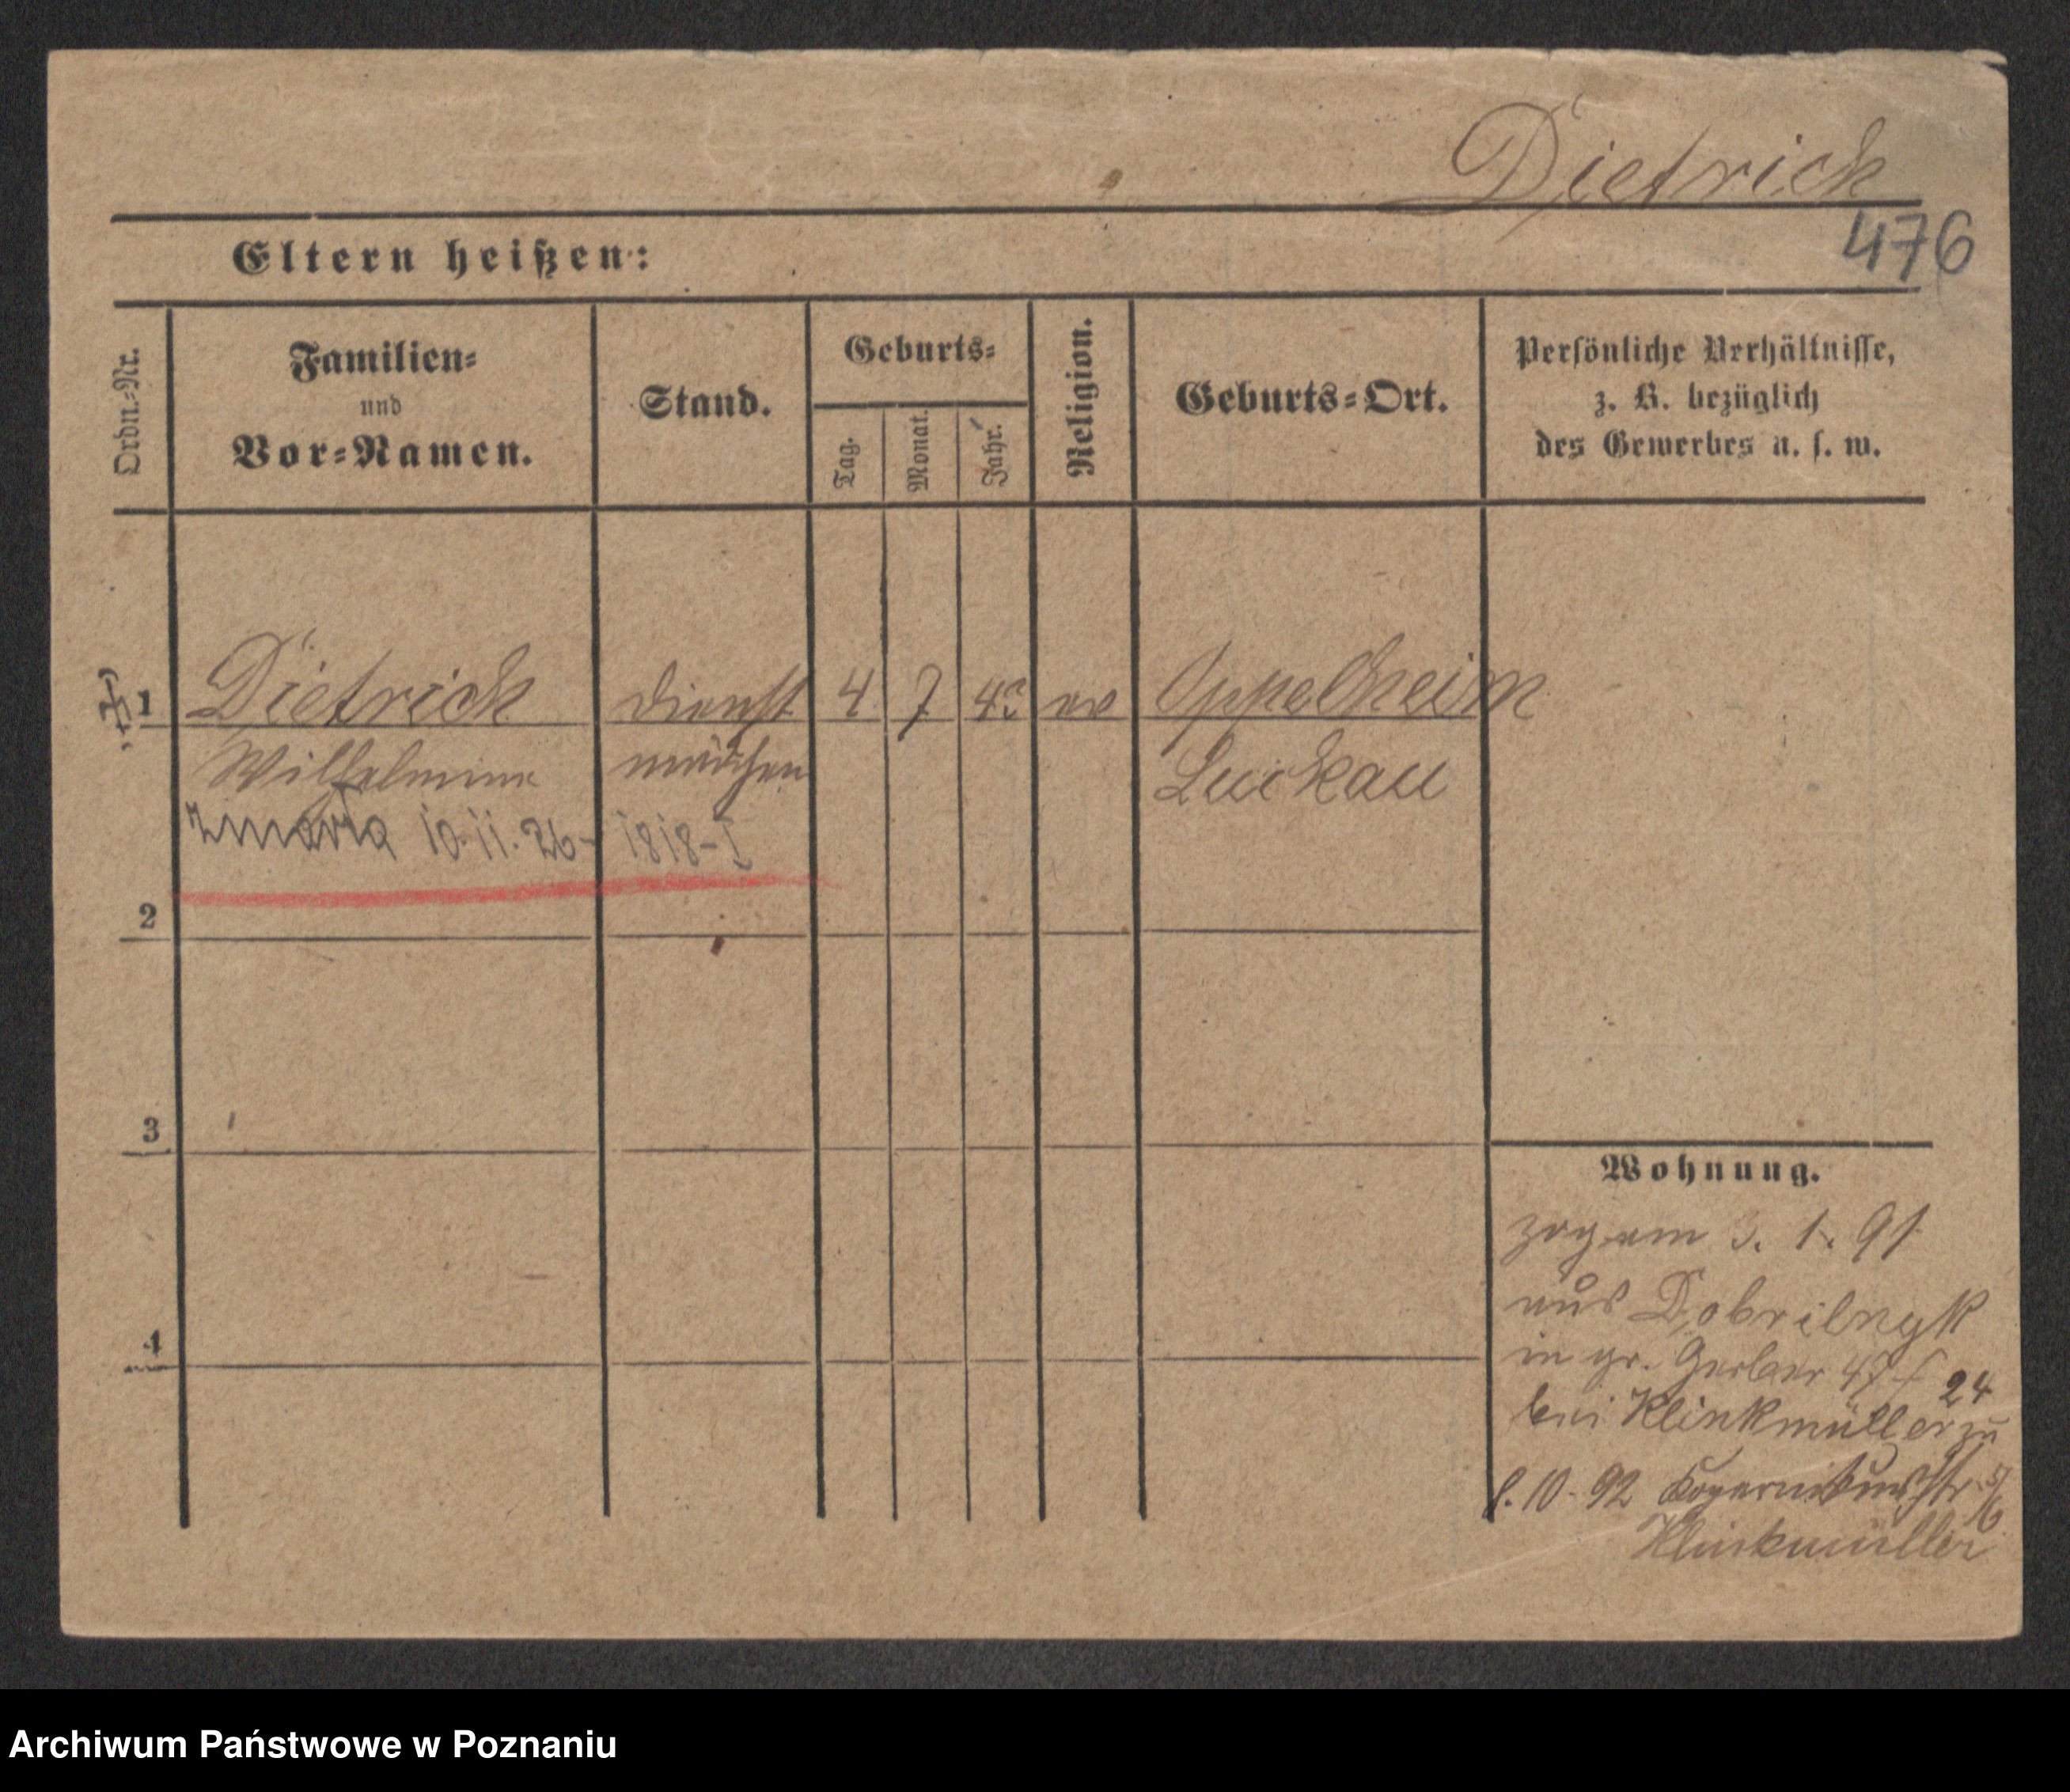 Dietrich
476
Eltern heißen:
Ordn.-Nr.
Familien-
und
Vor-Namen.
Stand.
Geburts-
Tag.
Monat.
Jahr.
Religion.
Geburts-Ort.
Persönliche Verhältnisse,
z. B. bezüglich
des Gewerbes u. s. w.
1 Dietrich Dienst 4 7 ev Oppelheim
Wilhelmine mädchen Luckau
zmarła 10.11.26- 1818-I
2
3
4
Wohnung.
zog am 3. 1. 91
aus Dobrilugk
in gr. Gerber 47 24
bei Klinkmüller zu
10-92 Kopernikusstr. 5/6
Klinkmüller
Archiwum Państwowe w Poznaniu